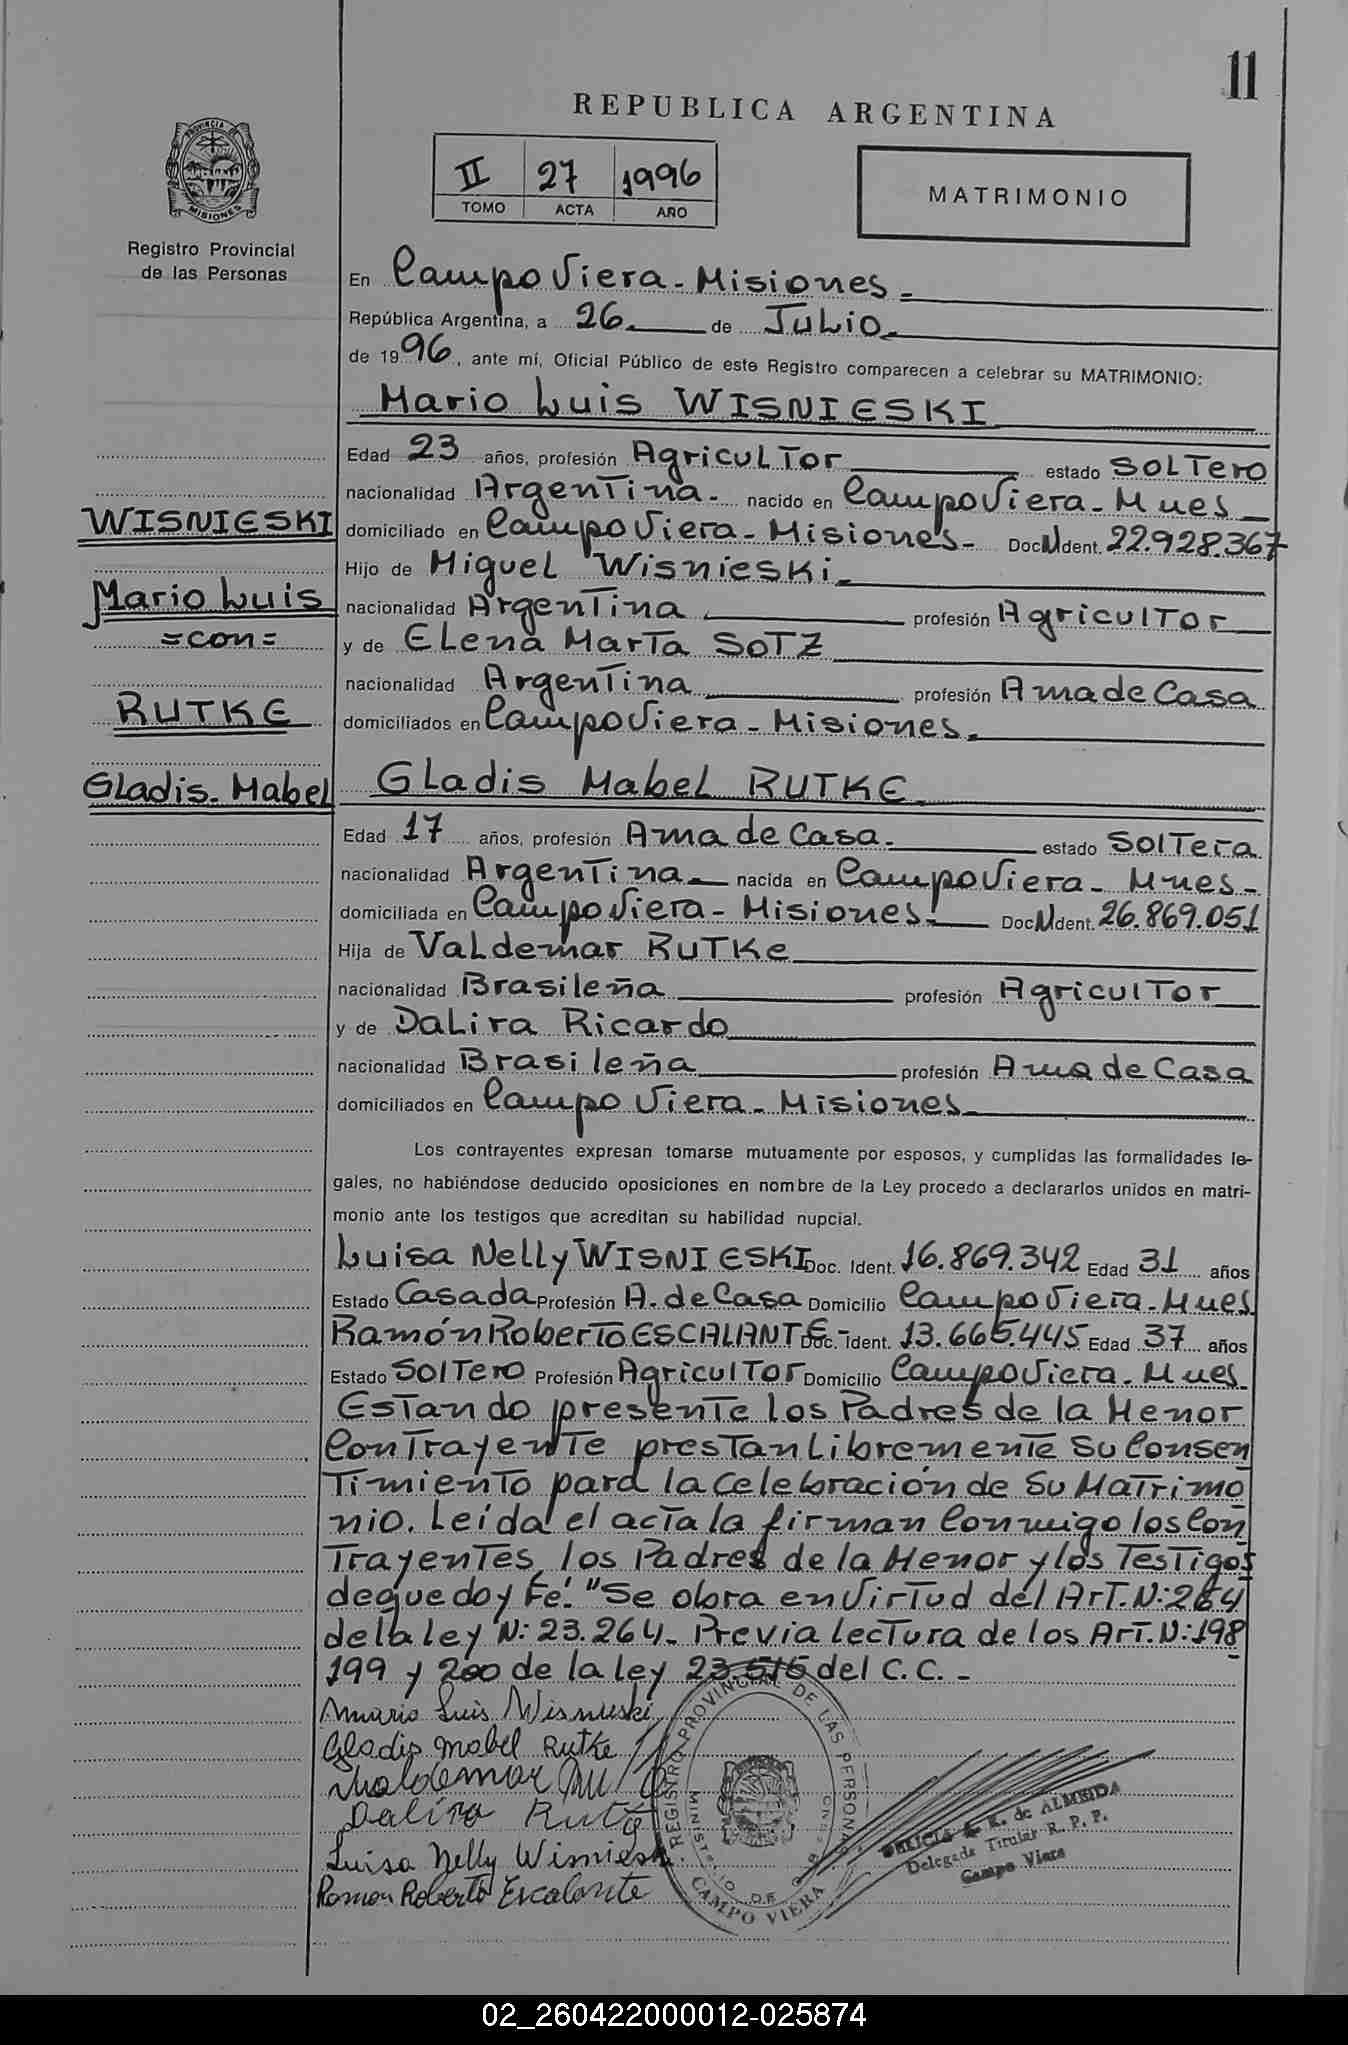 11
REPUBLICA ARGENTINA
PROVINCIA DE
MISIONES
Registro Provincial
de las Personas
II 27 1996
TOMO ACTA AÑO
MATRIMONIO
En Campo Viera - Misiones -
República Argentina, a 26 de Julio
de 1996, ante mí, Oficial Público de este Registro comparecen a celebrar su MATRIMONIO:
Mario Luis WISNIESKI
Edad 23 años, profesión Agricultor estado Soltero
nacionalidad Argentina - nacido en Campo Viera - Mnes
domiciliado en Campo Viera - Misiones - Doc N Ident. 22.928.367
Hijo de Miguel Wisnieski
nacionalidad Argentina profesión Agricultor
y de Elena Marta SOTZ
nacionalidad Argentina profesión Ama de Casa
domiciliados en Campo Viera - Misiones
WISNIESKI
Mario Luis
=con=
RUTKE
Gladis - Mabel
Gladis Mabel RUTKE
Edad 17 años, profesión Ama de Casa estado Soltera
nacionalidad Argentina nacida en Campo Viera - Mnes -
domiciliada en Campo Viera - Misiones - Doc N Ident. 26.869.051
Hija de Valdemar RUTKe
nacionalidad Brasileña profesión Agricultor
y de Dalira Ricardo
nacionalidad Brasileña profesión Ama de Casa
domiciliados en Campo Viera - Misiones
Los contrayentes expresan tomarse mutuamente por esposos, y cumplidas las formalidades le-
gales, no habiéndose deducido oposiciones en nombre de la Ley procedo a declararlos unidos en matri-
monio ante los testigos que acreditan su habilidad nupcial.
Luisa Nelly WISNIESKI Doc. Ident. 16.869.342 Edad 31 años
Estado Casada Profesión A. de Casa Domicilio Campo Viera - Mnes
Ramón Roberto ESCALANTE - Doc. Ident. 13.665.445 Edad 37 años
Estado Soltero Profesión Agricultor Domicilio Campo Viera - Mnes
Estando presente los Padres de la Menor
Contrayente prestan libremente su Consen
timiento para la Celebración de su Matrimo
nio. Leída el acta la firman Conmigo los Con
trayentes, los Padres de la Menor y los Testigos
de que doy Fé. "Se obra en Virtud del Art. N: 264
de la ley N: 23.264 - Previa lectura de los Art. N: 198
199 y 200 de la ley 23.515 del C.C. -
Mario Luis Wisnieski
Gladis Mabel Rutke
Valdemar
Dalira Rutke
Luisa Nelly Wisnieski
Ramon Roberto Escalante
REGISTRO PROVINCIAL DE LAS PERSONAS
MINISTERIO DE
CAMPO VIERA
DELICIA R. de ALMEIDA
Delegada Titular R. P. P.
Campo Viera
02_260422000012-025874